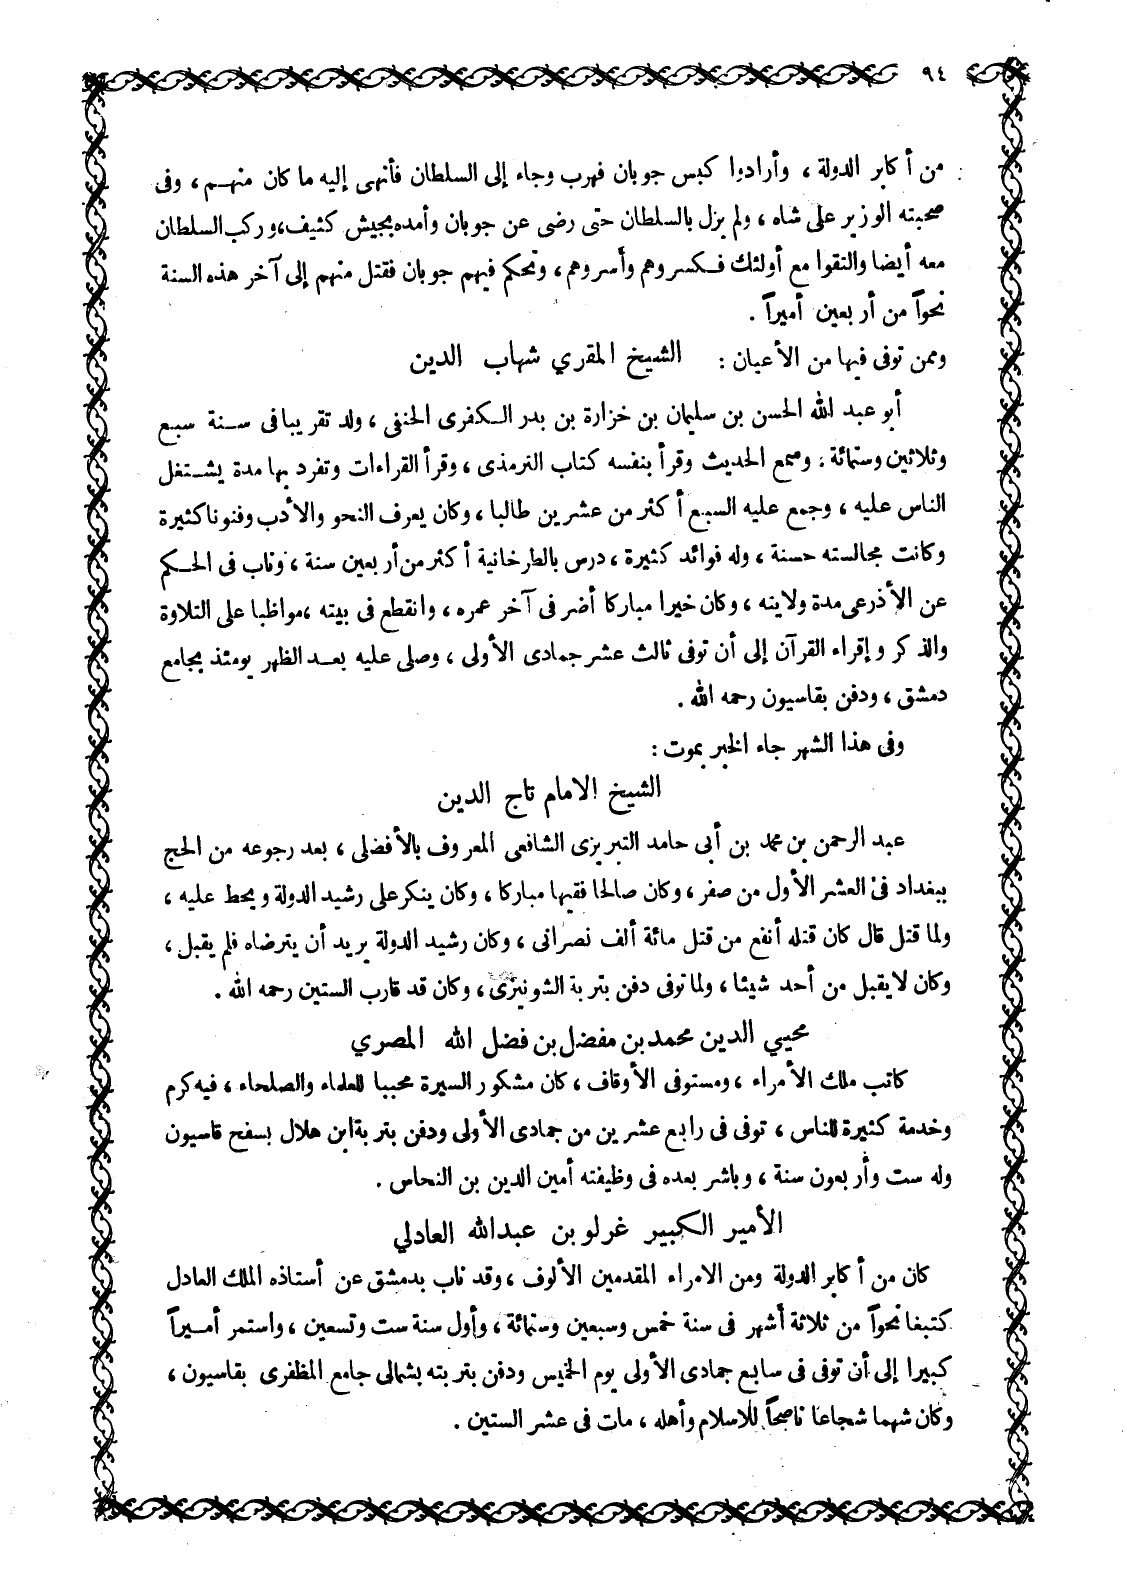 ٩٤
من أكابر الدولة ، وأرادوا كبس جوبان فهرب وجاء إلى السلطان فأنهى إليه ما كان منهم ، وفى
صحبته الوزير على شاه ، ولم يزل بالسلطان حتى رضى عن جوبان وأمده بجيش كثيف ، وركب السلطان
معه أيضا والتقوا مع أولئك فكسروهم وأسروهم ، وتحكم فيهم جوبان فقتل منهم إلى آخر هذه السنة
نحواً من أربعين أميراً .
وممن توفى فيها من الأعيان : الشيخ المقري شهاب الدين
أبو عبد الله الحسن بن سليمان بن خزارة بن بدر الكفرى الحنفى ، ولد تقريبا فى سنة سبع
وثلاثين وستمائة . وسمع الحديث وقرأ بنفسه كتاب الترمذى ، وقرأ القراءات وتفرد بها مدة يشتغل
الناس عليه ، وجمع عليه السبع أكثر من عشرين طالبا ، وكان يعرف النحو والأدب وفنونا كثيرة
وكانت مجالسته حسنة ، وله فوائد كثيرة ، درس بالطرخانية أكثر من أربعين سنة ، وناب فى الحكم
عن الأذرعى مدة ولايته ، وكان خيرا مباركا أضر فى آخر عمره ، وانقطع فى بيته ، مواظبا على التلاوة
والذكر وإقراء القرآن إلى أن توفى ثالث عشر جمادى الأولى ، وصلى عليه بعد الظهر يومئذ بجامع
دمشق ، ودفن بقاسيون رحمه الله .
وفى هذا الشهر جاء الخبر بموت :
الشيخ الامام تاج الدين
عبد الرحمن بن محمد بن أبى حامد التبريزى الشافعى المعروف بالأفضلى ، بعد رجوعه من الحج
ببغداد فى العشر الأول من صفر ، وكان صالحا فقيها مباركا ، وكان ينكر على رشيد الدولة ويحط عليه ،
ولما قتل قال كان قتله أنفع من قتل مائة ألف نصرانى ، وكان رشيد الدولة يريد أن يترضاه فلم يقبل ،
وكان لا يقبل من أحد شيئا ، ولما توفى دفن بتربة الشونيزى ، وكان قد قارب الستين رحمه الله .
محيي الدين محمد بن مفضل بن فضل الله المصري
كاتب ملك الأمراء ، ومستوفى الأوقاف ، كان مشكور السيرة محببا للعلماء والصلحاء ، فيه كرم
وخدمة كثيرة للناس ، توفى فى رابع عشرين من جمادى الأولى ودفن بتربة ابن هلال بسفح قاسيون
وله ست وأربعون سنة ، وباشر بعده فى وظيفته أمين الدين بن النحاس .
الأمير الكبير غرلو بن عبدالله العادلي
كان من أكابر الدولة ومن الامراء المقدمين الألوف ، وقد ناب بدمشق عن أستاذه الملك العادل
كتبغا نحواً من ثلاثة أشهر فى سنة خمس وسبعين وستمائة ، وأول سنة ست وتسعين ، واستمر أميراً
كبيرا إلى أن توفى فى سابع جمادى الأولى يوم الخميس ودفن بتربته بشمالى جامع المظفرى بقاسيون ،
وكان شهما شجاعا ناصحاً للاسلام وأهله ، مات فى عشر الستين .